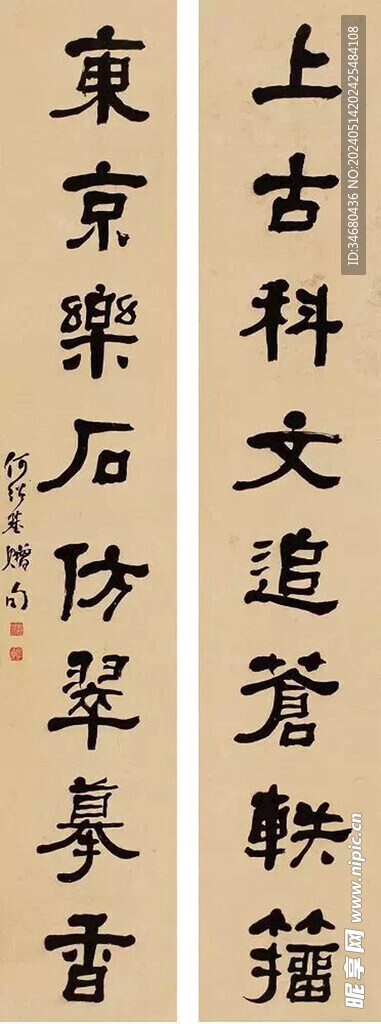 上古科文追蒼軼籀
東京樂石仿翠摹香
何紹基贈句
ID:34680436 NO:20240514202425484108
昵享网 www.nipic.cn